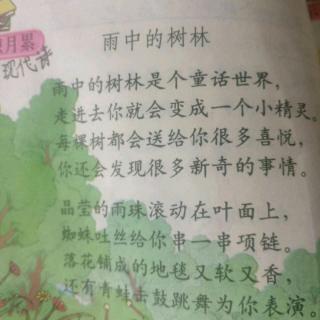 月累
现代诗
雨中的树林
雨中的树林是个童话世界，
走进去你就会变成一个小精灵。
每棵树都会送给你很多喜悦，
你还会发现很多新奇的事情。
晶莹的雨珠滚动在叶面上，
蜘蛛吐丝给你串一串项链。
落花铺成的地毯又软又香，
还有青蛙击鼓跳舞为你表演。